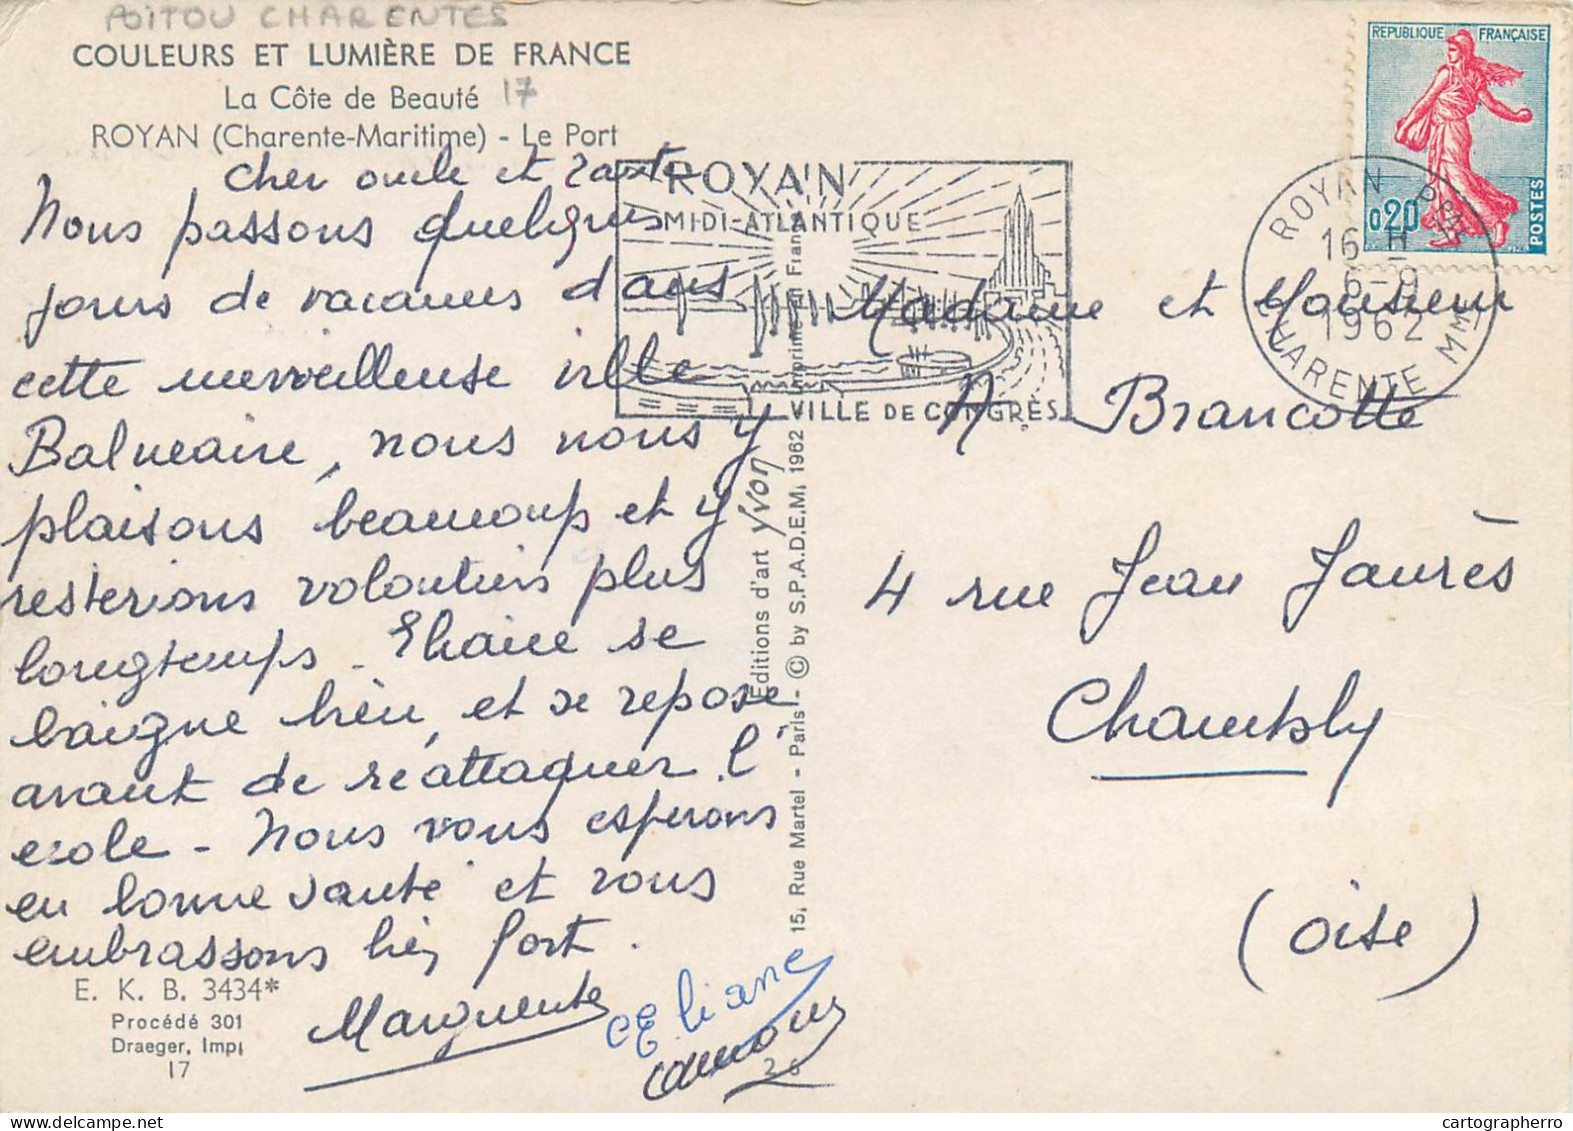 POITOU CHARENTES
COULEURS ET LUMIÈRE DE FRANCE
La Côte de Beauté 17
ROYAN (Charente-Maritime) - Le Port
cher oncle et tante
Nous passons quelques
jours de vacances dans
cette merveilleuse ville
Balneaire, nous nous y
plaisons beaucoup et y
resterions volontiers plus
longtemps - Eliane se
baigne bien, et se repose
avant de réattaquer l'
ecole - Nous vous esperons
en bonne santé et vous
embrassons bien fort.
Marguerite
Eliane
E. K. B. 3434*
Procédé 301
Draeger, Imp.
17
26
15, Rue Martel - Paris - © by S.P.A.D.E.M. 1962 Imprimé en France
Editions d'art Yvon
ROYAN
MIDI-ATLANTIQUE
VILLE DE CONGRÈS
ROYAN PPAL
16 H
6-9
1962
CHARENTE MME
REPUBLIQUE FRANÇAISE
0,20
POSTES
Madame et Monsieur
A Brancotte
4 rue Jean Jaurès
Chambly
(oise)
cartographerro